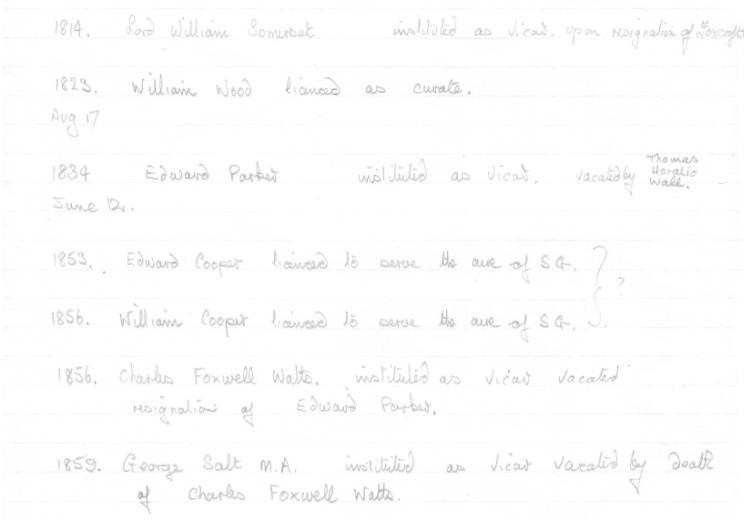 1814. Lord William Somerset instituted as vicar. upon resignation of
1823. William Wood licenced as curate.
Aug 17
1834 Edward Parker instituted as vicar. vacated by Thomas Horatio Wall.
June 12.
1853. Edward Cooper licenced to serve the cure of S G.
?
1856. William Cooper licenced to serve the cure of S G.
1856. Charles Foxwell Watts. instituted as vicar vacated
resignation of Edward Parker.
1859. George Salt M.A. instituted as vicar vacated by death
of Charles Foxwell Watts.